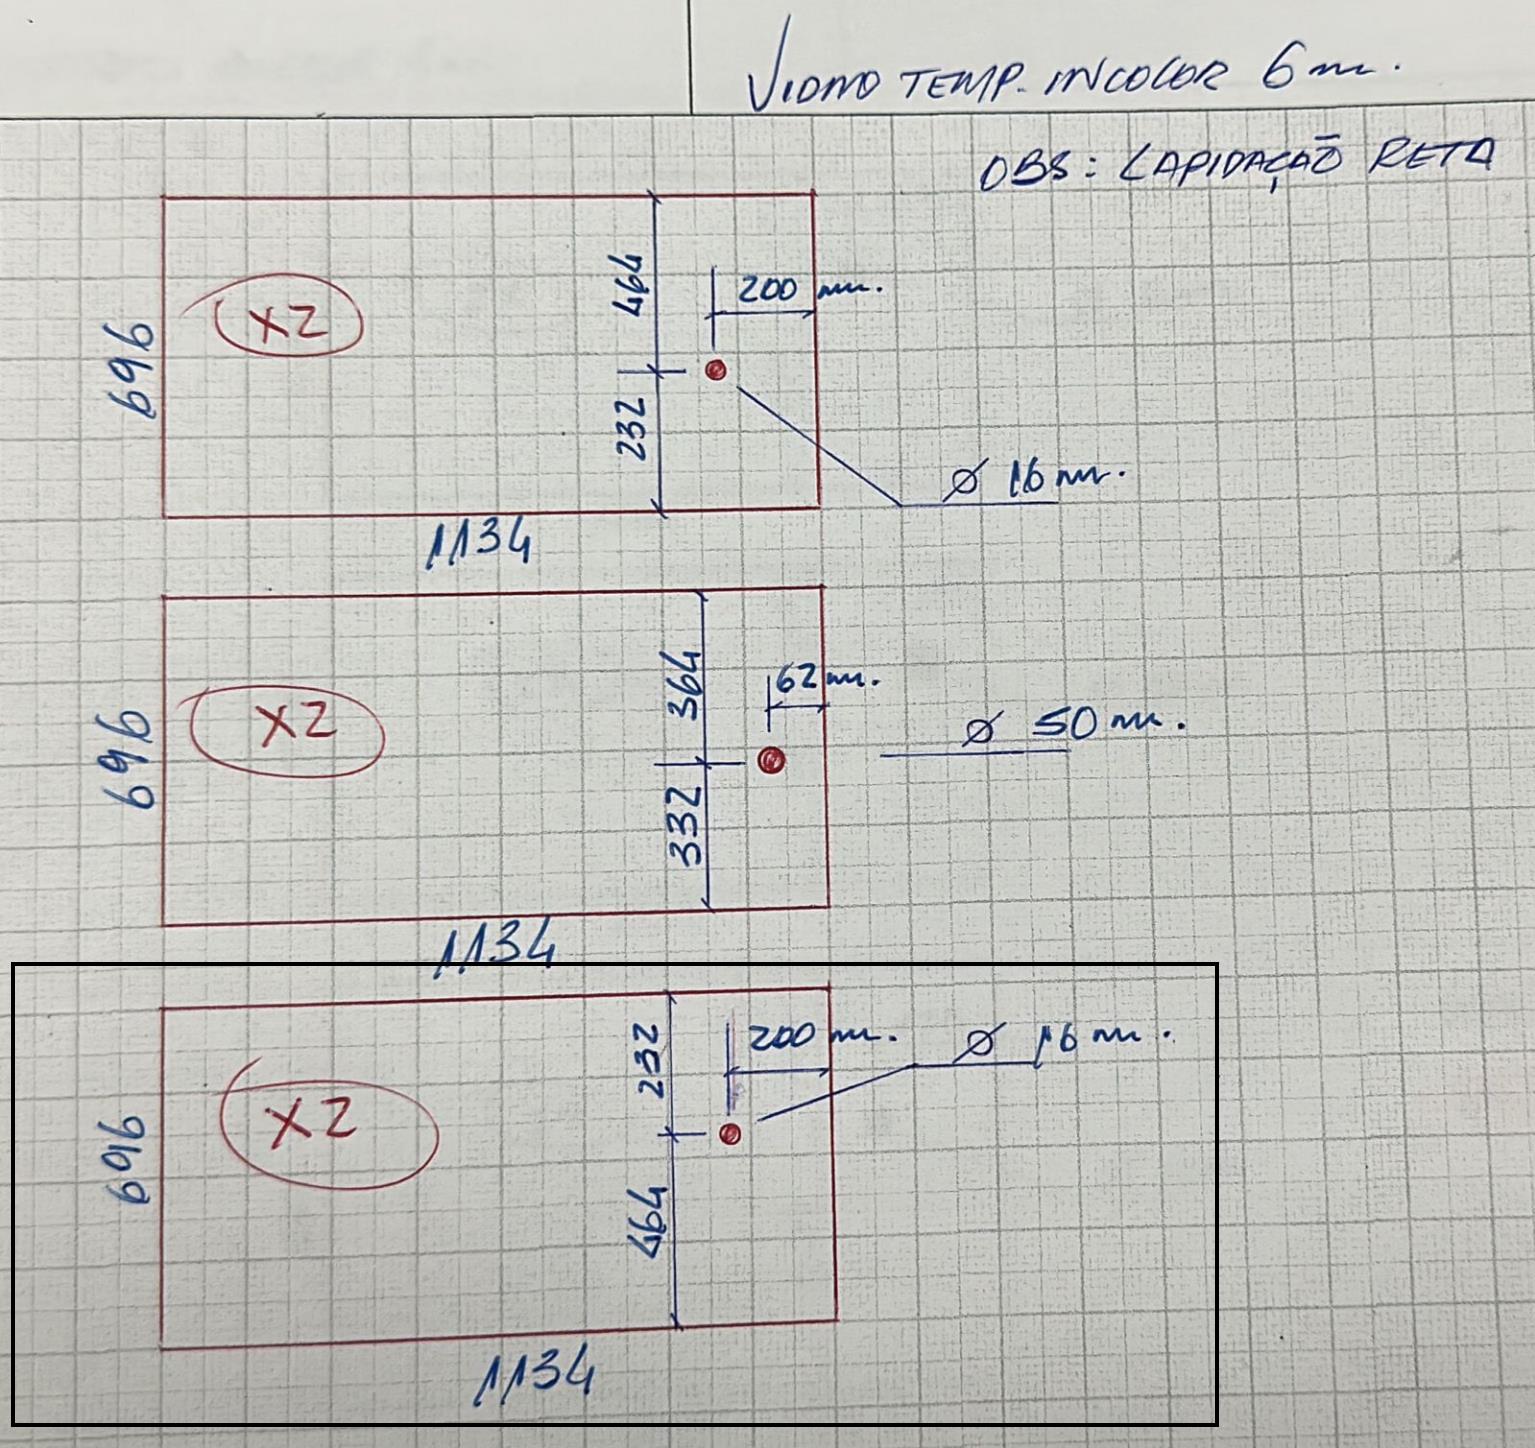 VIDRO TEMP. INCOLOR 6 mm.
OBS: LAPIDAÇÃO RETA
696
X2
464
232
200 mm.
Ø 16 mm.
1134
696
X2
364
332
62 mm.
Ø 50 mm.
1134
696
X2
232
464
200 mm.
Ø 16 mm.
1134